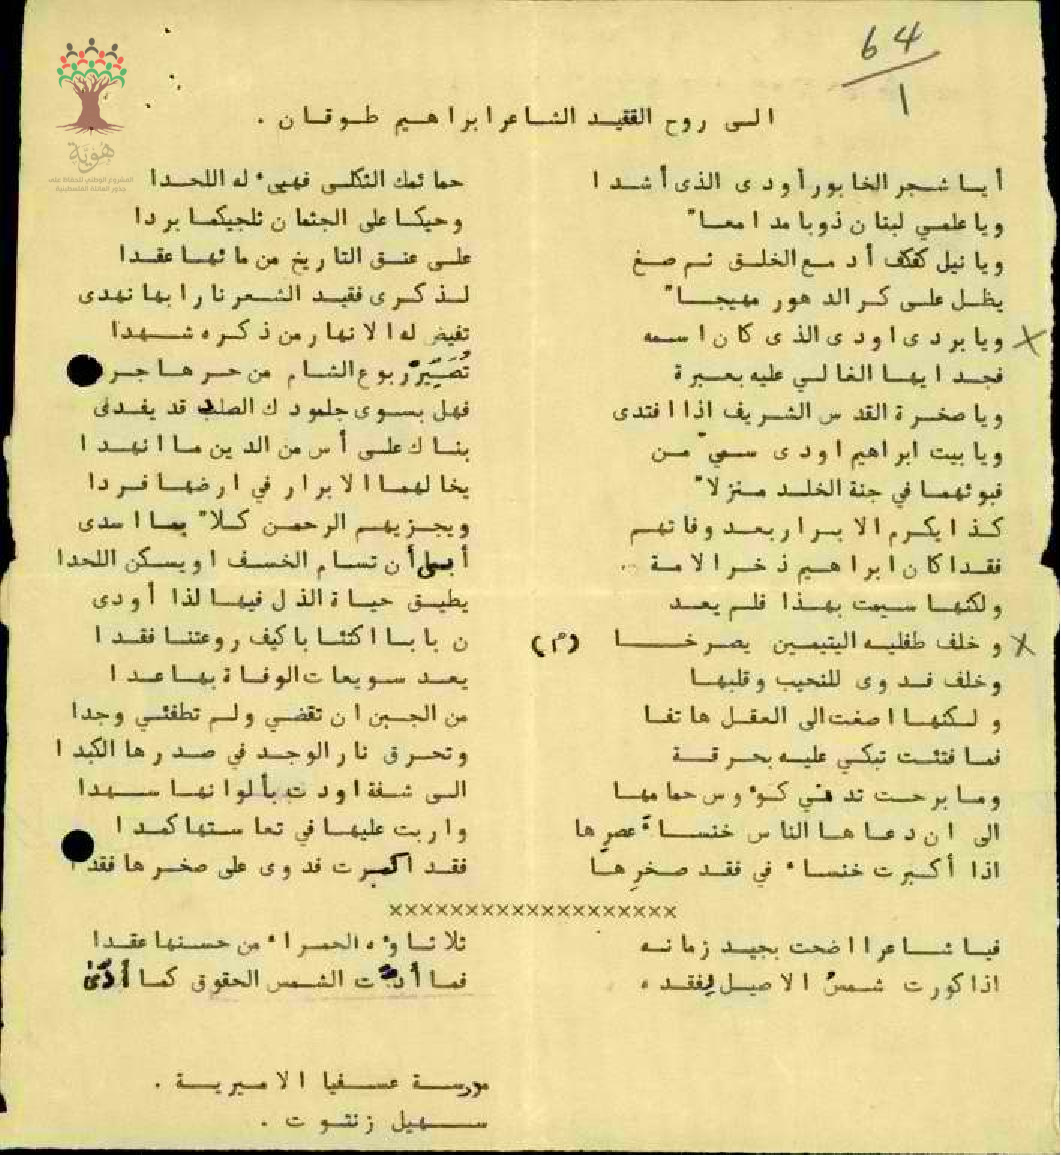 64
١
هوية
المشروع الوطني للحفاظ على
جذور العائلة الفلسطينية
الى روح الفقيد الشاعر ابراهيم طوقان .
أيا شجر الخابور أودى الذى أشدا حمائمك الثكلى فهيىء له اللحدا
ويا علمي لبنان ذوبا مدامعا" وحيكا على الجثمان ثلجيكما بردا
ويا نيل كفكف أدمع الخلق ثم صغ على عنق التاريخ من مائها عقدا
يظل على كر الدهور مهيجا" لذكرى فقيد الشعر نارا بها نهدى
ويا بردى اودى الذى كان اسمه تفيض له الانهار من ذكره شهدا
فجد ايها الغالي عليه بعبرة تُصَيِّر ربوع الشام من حرها جر
ويا صخرة القدس الشريف اذا افتدى فهل بسوى جلمودك الصلب قد يفدى
ويا بيت ابراهيم اودى سمي من بناك على أس من الدين ما انهدا
فبوئهما في جنة الخلد منزلا" يخالهما الابرار في ارضها فردا
كذا يكرم الابرار بعد وفاتهم ويجزيهم الرحمن كلا" بما اسدى
فقد كان ابراهيم ذخر الامة .. أبى أن تسام الخسف او يسكن اللحدا
ولكنها سيمت بهذا فلم يعد يطيق حياة الذل فيها لذا أودى
و خلف طفليه اليتيمين يصرخا (م) ن بابا اكتئابا كيف روعتنا فقدا
وخلف فدوى للنحيب وقلبها يعد سويعات الوفاة بها عدا
ولكنها اصغت الى العقل هاتفا من الجبن ان تقضي ولم تطفئي وجدا
فما فتئت تبكي عليه بحرقة وتحرق نار الوجد في صدرها الكبدا
وما برحت تدني كؤوس حمامها الى شفة اودت بألوانها سهدا
الى ان دعاها الناس خنساءَ عصرِها واربت عليها في تعاستها كمدا
اذا أكبرت خنساء في فقد صخرِها فقد اكبرت فدوى على صخرها فقدا
×××××××××××××××××××
فيا شاعرا اضحت بجيد زمانه ثلاثاؤه الحمراء من حسنها عقدا
اذا كورت شمسُ الاصيل لِفقده فما أدّت الشمس الحقوق كما أدّى
مدرسة عسفيا الاميرية .
سهيل زنتوت .